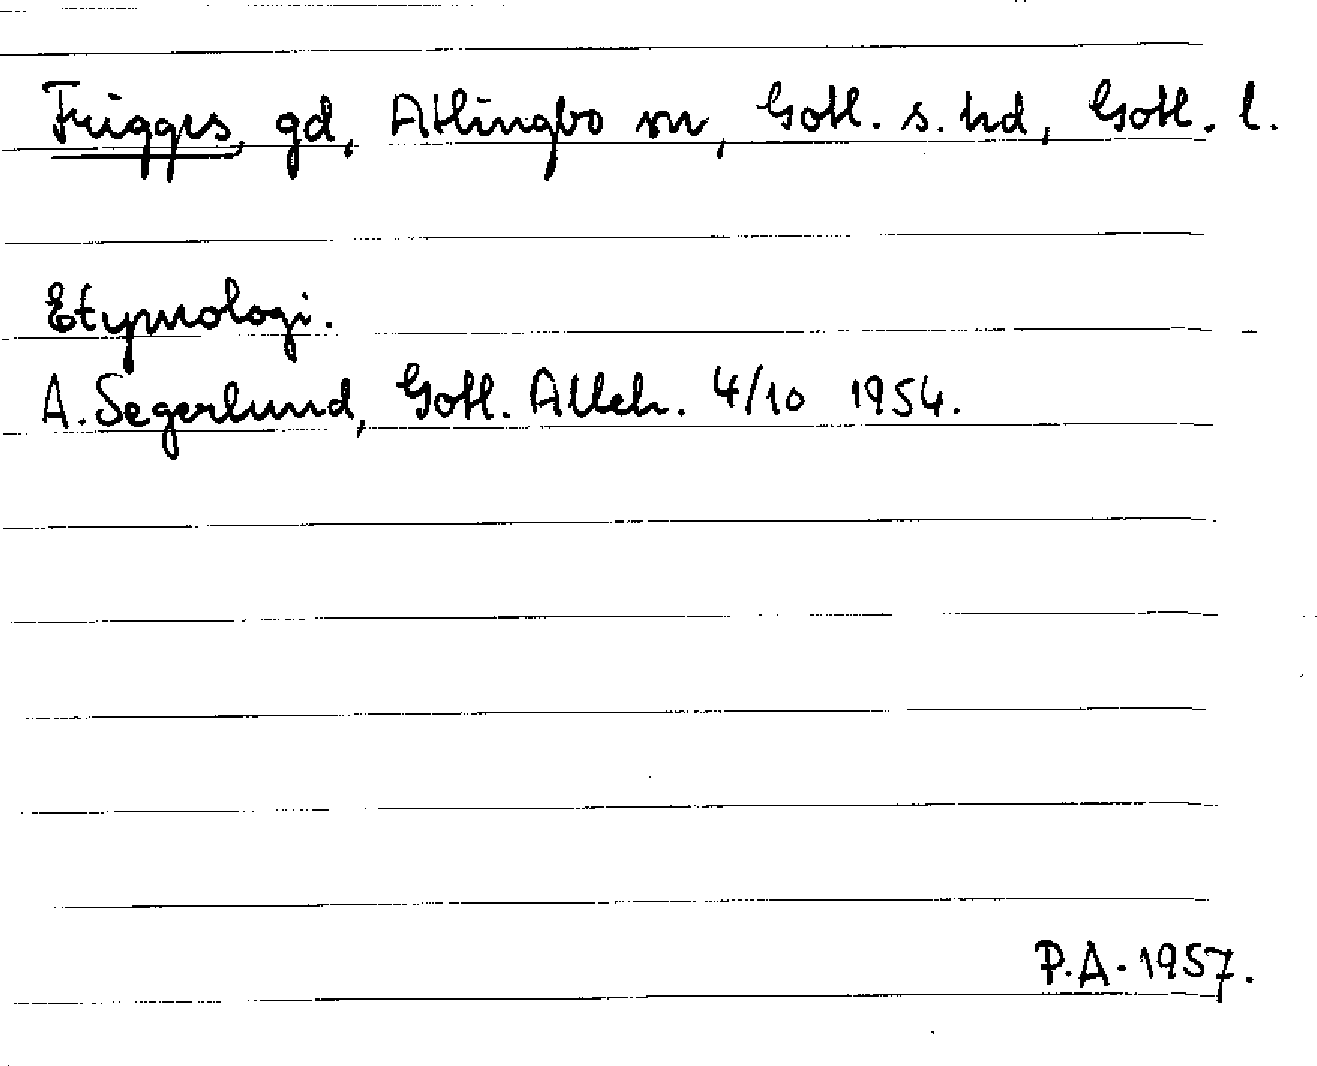 Frigges, gd, Atlingbo sn, Gotl. s. hd, Gotl. l.
Etymologi.
A. Segerlund, Gotl. Alleh. 4/10 1954.
P.A. 1957.